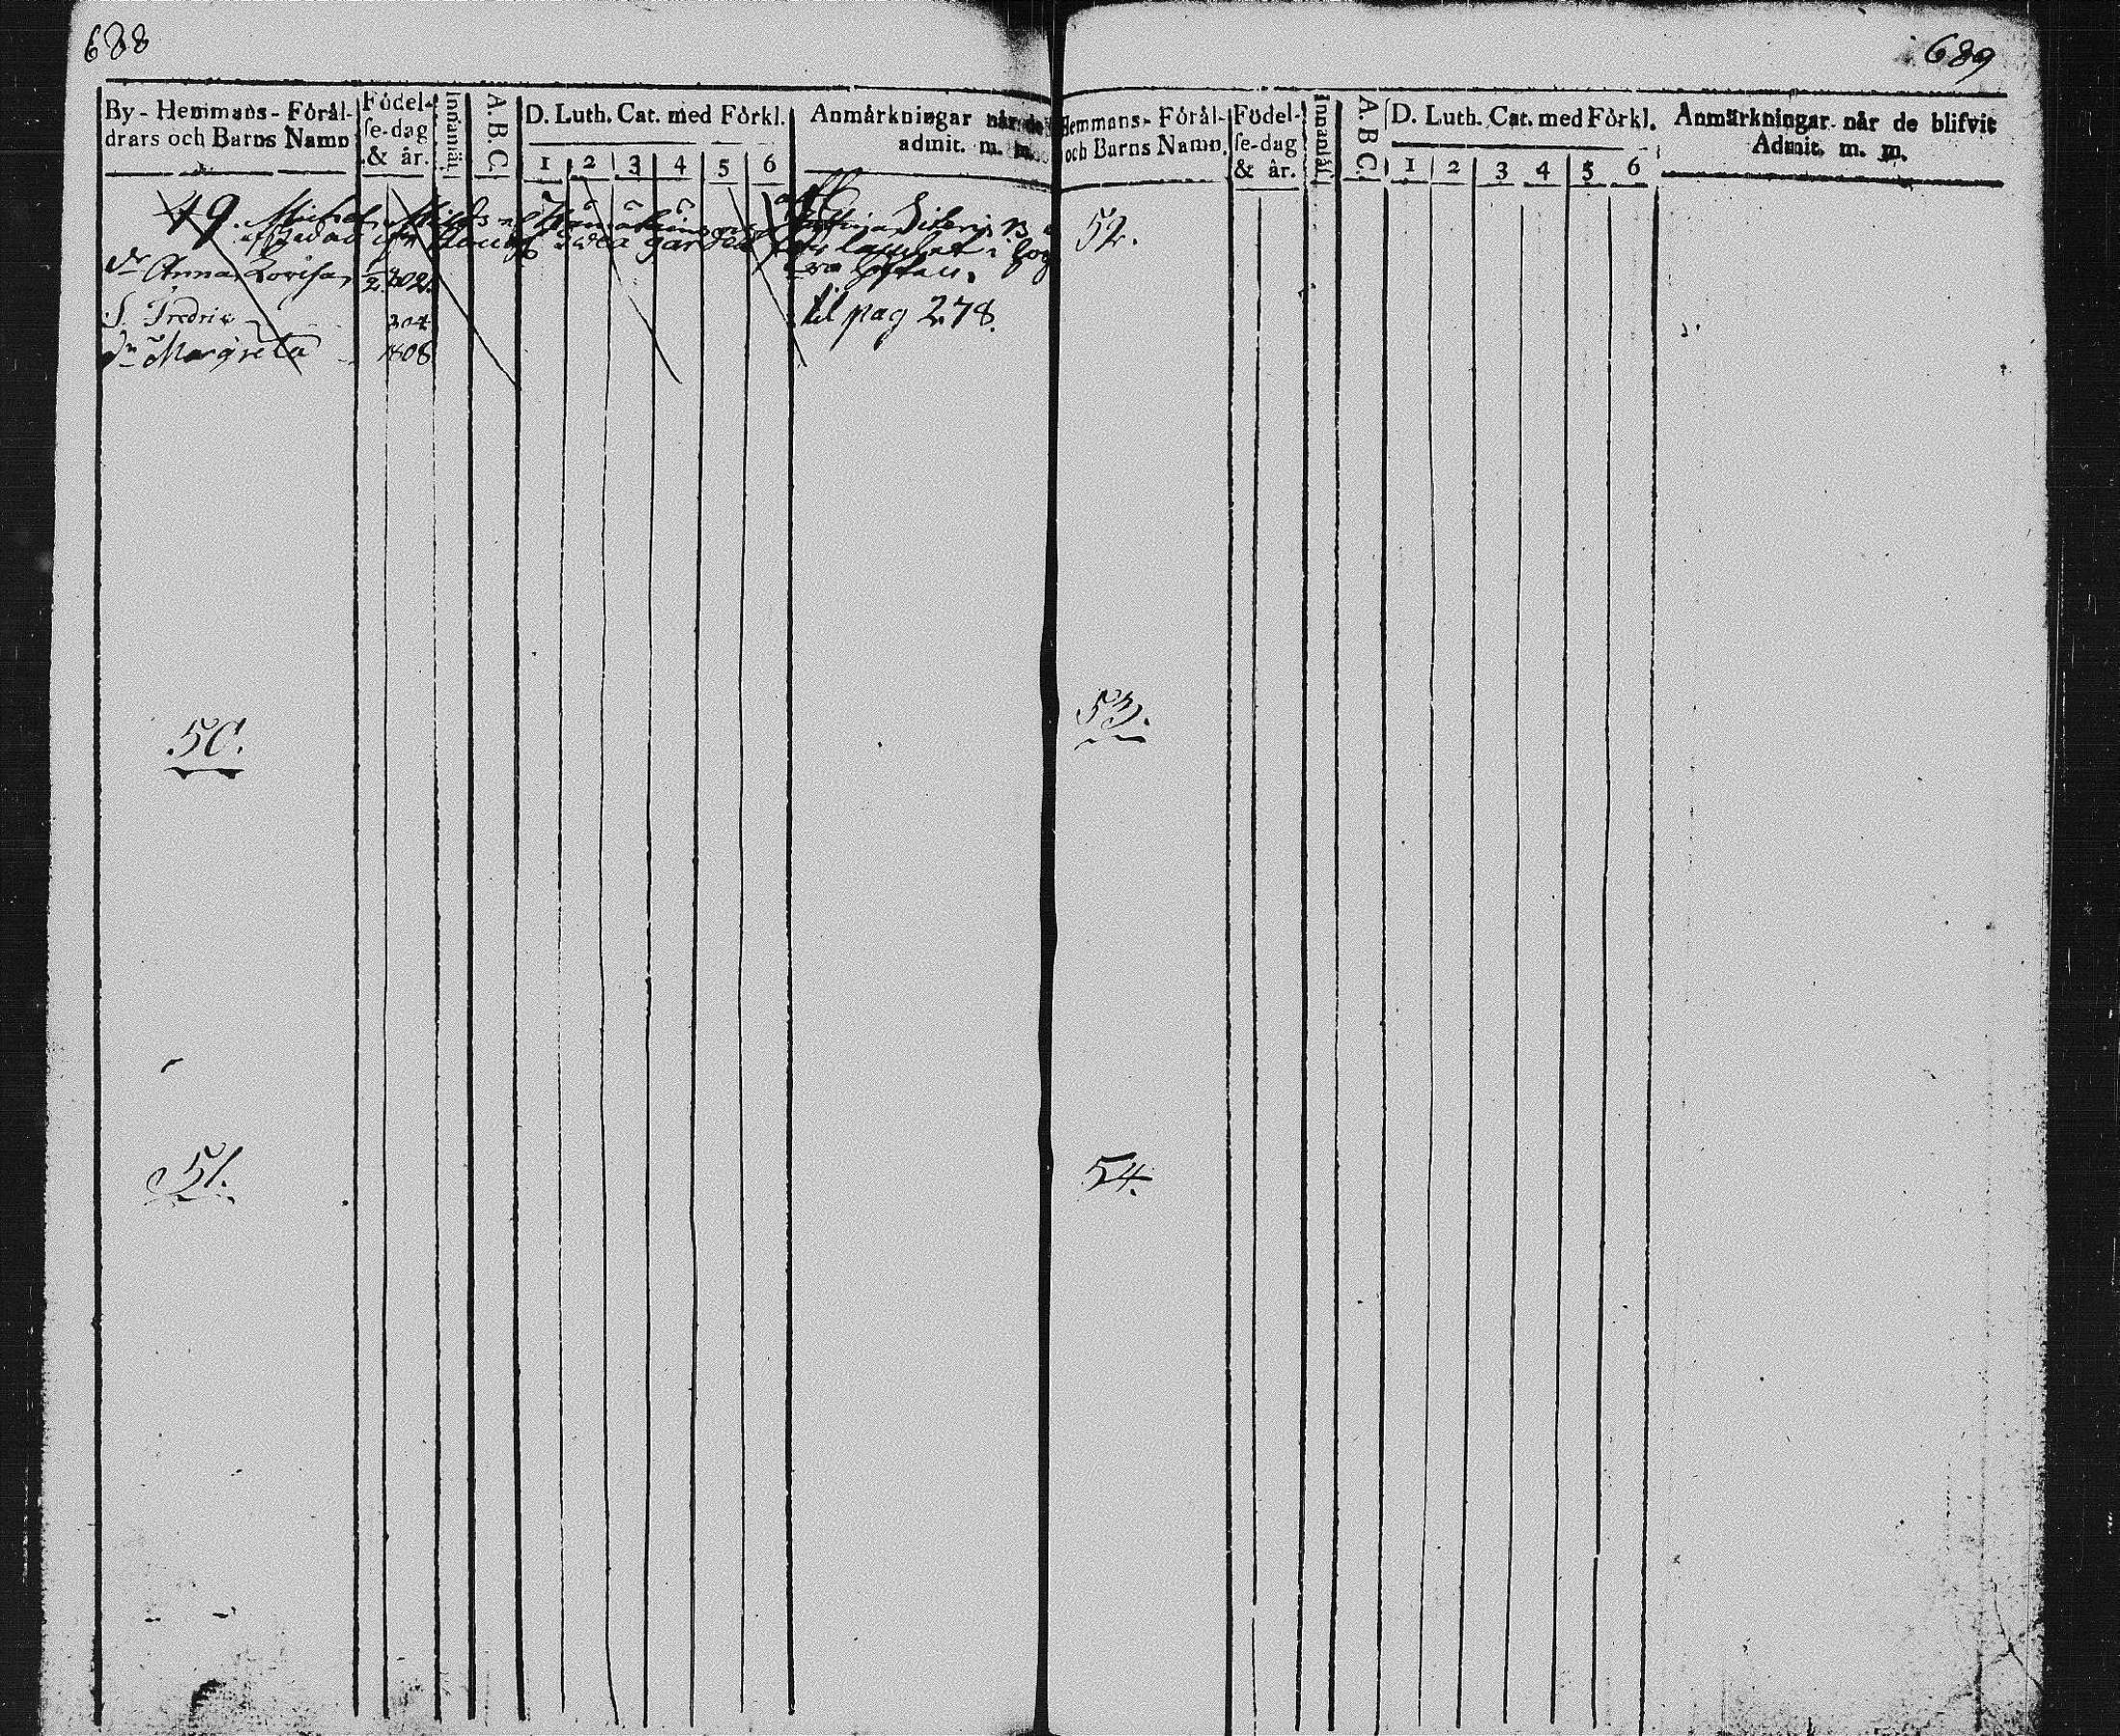 688
By - Hemmans - Förål-
drars och Barns Namn
Födel-
se-dag
& år.
Innanläs.
A. B. C.
D. Luth. Cat. med Förkl.
1 2 3 4 5 6
Anmårkningar når de
admit. m. m.
49.
Dr Anna Lovisa 2 802.
S. Fredric 804
Dr Margreta 1808
til pag 278.
50.
51.
689
Hemmans - Förål-
och Barns Namn.
Födel-
se-dag
& år.
Innanläs.
A. B. C.
D. Luth. Cat. med Förkl.
1 2 3 4 5 6
Anmärkningar når de blifvit
Admit. m. m.
52.
53.
54.